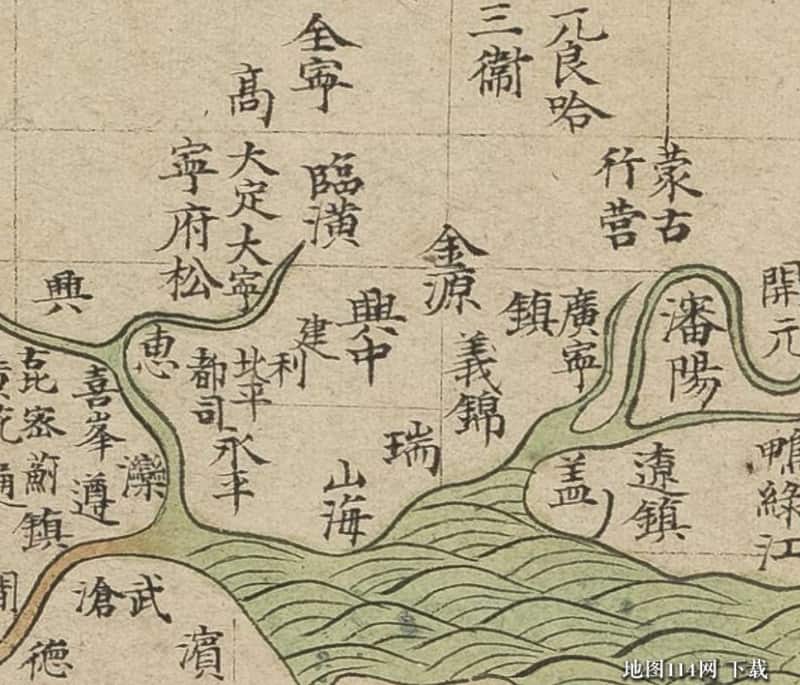 兀良哈
三衞
全寧
高
蒙古
行营
臨潢
大定大寧
寧府松
開元
瀋陽
廣寧
鎮
金源
義錦
興中
建
利
北平
都司
永平
恵
興
喜峯
遵
灤
昆密薊
鎮
瑞
山海
鴨綠江
遼鎮
盖
武
滄
濱
德
地图114网 下载